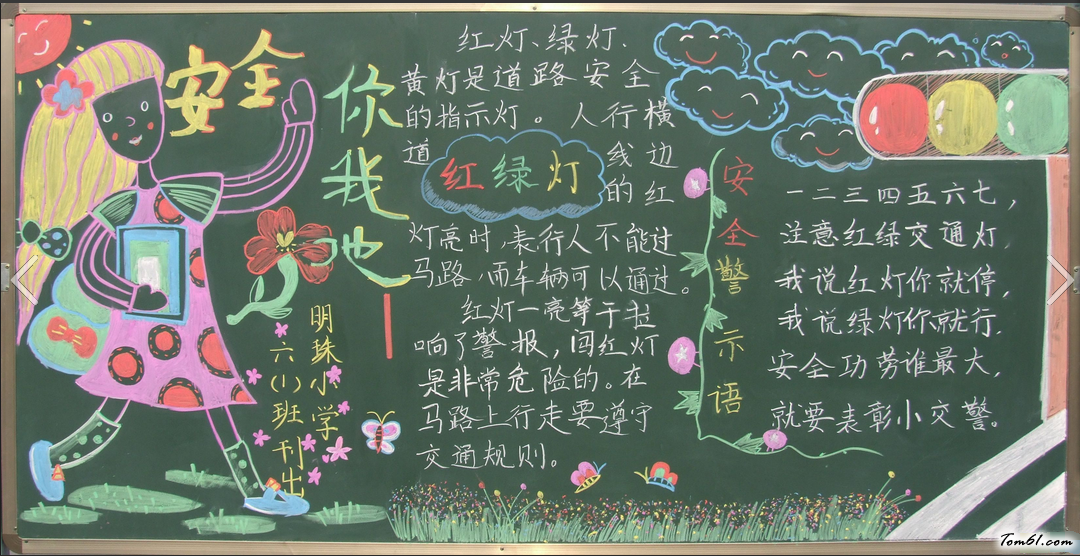 安全
你我他
明珠小学
六(1)班刊出
红灯、绿灯、
黄灯是道路安全
的指示灯。人行横
道 线边
红绿灯
的红
灯亮时,表行人不能过
马路,而车辆可以通过。
红灯一亮等于拉
响了警报,闯红灯
是非常危险的。在
马路上行走要遵守
交通规则。
安全警示语
一二三四五六七,
注意红绿交通灯,
我说红灯你就停,
我说绿灯你就行.
安全功劳谁最大,
就要表彰小交警。
Tom61.com